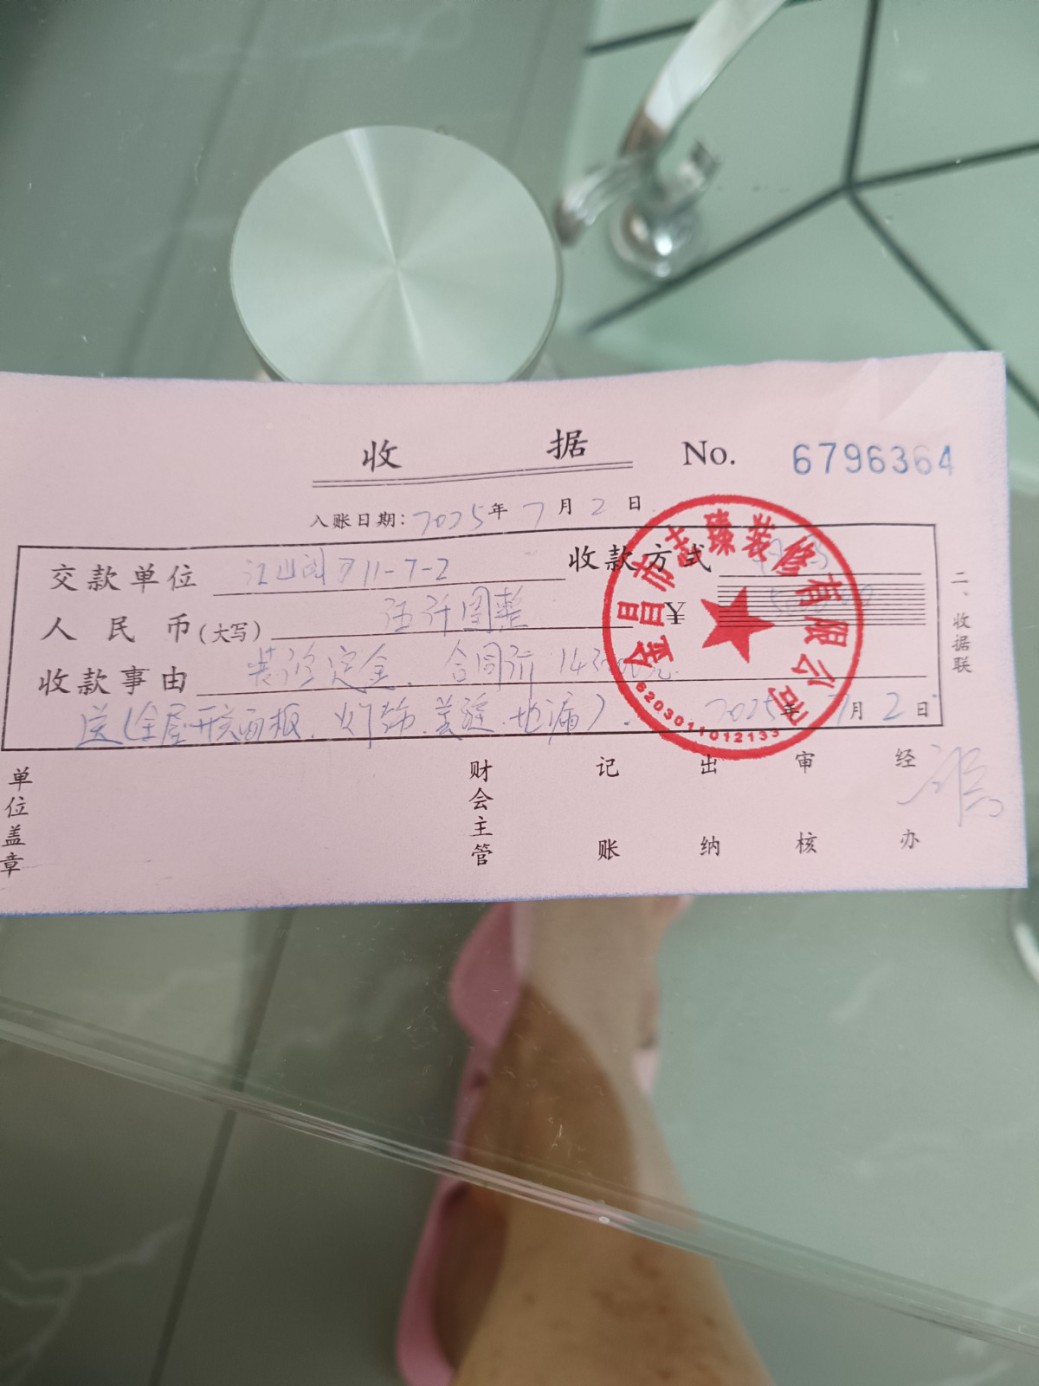 收据 No. 6796364
入账日期：2025年7月2日
交款单位 江山阅 11-7-2 收款方式
人民币（大写） 伍仟圆整 ¥
收款事由 装修定金、合同
送（全屋开关面板、灯饰、美缝、地漏）。 2025年7月2日
二、收据联
金昌市 臻装修有限公司
6203011012133
单位盖章 财会主管 记账 出纳 审核 经办 冯